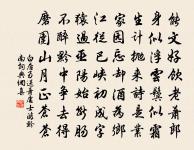 能文好飲老蕭郎
身似浮雲鬢似霜
生計拋來詩是業
家園忘却酒為鄉
江從巴峽初成字
猿過巫陽始斷腸
不醉黔中爭去得
磨圍山月正蒼蒼
白居易送蕭處士游黔
南詞典網書